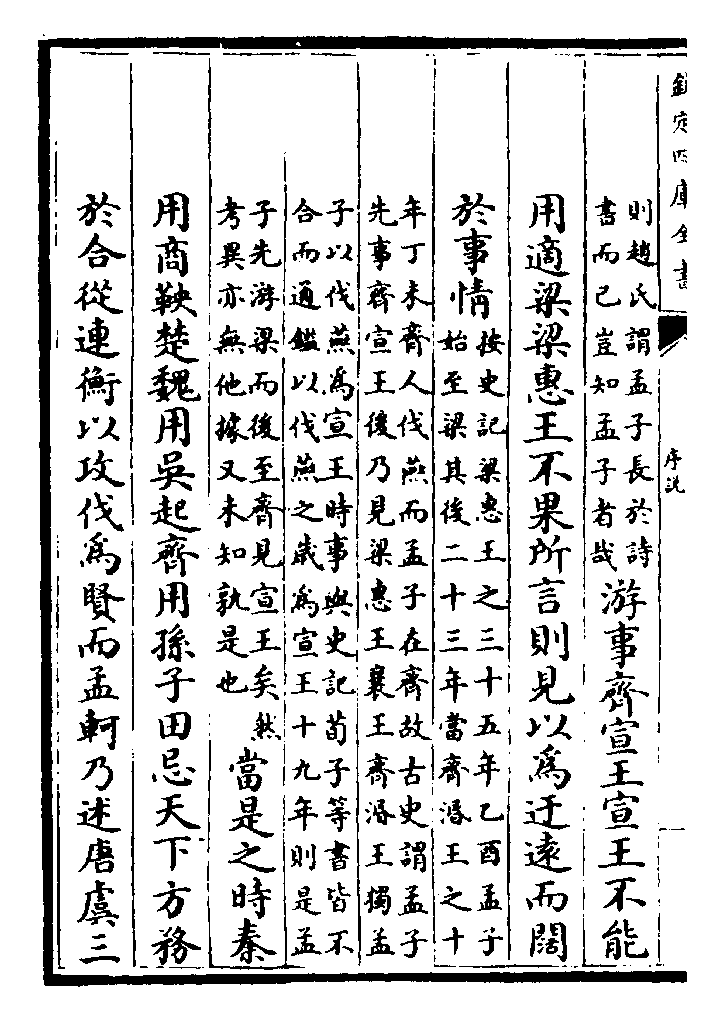 欽定四庫全書
序說
則趙氏謂孟子長於詩
書而已豈知孟子者哉
游事齊宣王宣王不能
用適梁梁惠王不果所言則見以爲迂遠而闊
於事情
按史記梁惠王之三十五年乙酉孟子
始至梁其後二十三年當齊湣王之十
年丁未齊人伐燕而孟子在齊故古史謂孟子
先事齊宣王後乃見梁惠王襄王齊湣王獨孟
子以伐燕爲宣王時事與史記荀子等書皆不
合而通鑑以伐燕之歲爲宣王十九年則是孟
子先游梁而後至齊見宣王矣然
考異亦無他據又未知孰是也
當是之時秦
用商鞅楚魏用吳起齊用孫子田忌天下方務
於合從連衡以攻伐爲賢而孟軻乃述唐虞三